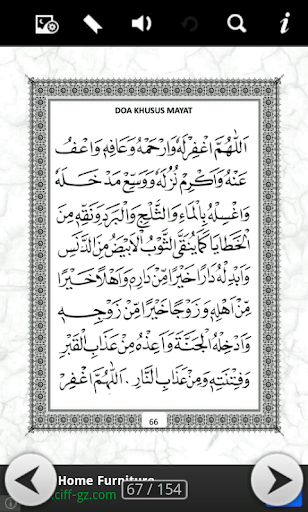 DOA KHUSUS MAYAT
اَللّٰهُمَّ اغْفِرْلَهُ وَارْحَمْهُ وَعَافِهِ وَاعْفُ
عَنْهُ وَاَكْرِمْ نُزُلَهُ وَوَسِّعْ مَدْخَلَهُ
وَاغْسِلْهُ بِالْمَاءِ وَالثَّلْجِ وَالْبَرَدِ وَنَقِّهِ مِنَ
الْخَطَايَا كَمَا يُنَقَّى الثَّوْبُ الْاَبْيَضُ مِنَ الدَّنَسِ
وَاَبْدِلْهُ دَارًا خَيْرًا مِنْ دَارِهِ وَاَهْلًا خَيْرًا
مِنْ اَهْلِهِ وَزَوْجًا خَيْرًا مِنْ زَوْجِهِ
وَاَدْخِلْهُ الْجَنَّةَ وَاَعِذْهُ مِنْ عَذَابِ الْقَبْرِ
وَفِتْنَتِهِ وَمِنْ عَذَابِ النَّارِ. اَللّٰهُمَّ اغْفِرْ
66
Home Furniture
.ciff-gz.com
67 / 154